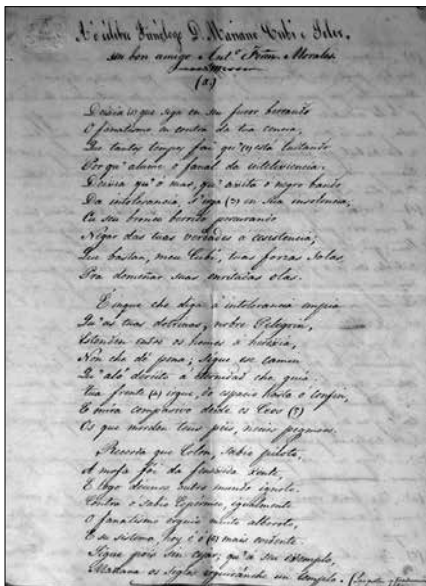 A'o célebre Frinólogo D. Mariano Cubi e Soler,
seu bon amigo Ant.º Fran. Morales
(a)
Deixa is que siga en seu furor berrando
O fanatismo en contra da tua cencia,
Que tantos tempos fai qu' (1) esta luitando
Porqu' alume o fanal da intelixencia.
Deixa qu' o mar, qu' axita o negro bando
Da intolerancia, siga (2) en sua insolencia,
Cu seu bronco berrido percurando
Negar das tuas verdades a eisistencia;
Que bastan, meu Cubi, tuas forzas solas,
Pra domeñar suas enritadas olas.
E inque che diga a intolerancia impia
Qu' as tuas dotrinas, nobre Pelegrin,
Estenden entre os homes a herexia,
Non che dé pena; sigue ese camin
Qu' aló dereito á eternidad che guia
Tua frente (4) irgue, do espacio hasta o confin,
E mira compasivo dende os Ceos (5)
Os que morden teus pés, necios pegmeos.
Recorda que Colon, sabio piloto,
A mofa foi da fementida xente
E logo dounos outro mundo ignoto.
Contra o sabio Copérnico, igualmente
O fanatismo erguiu moito alboroto,
E su sistema, hoy é o (6) mais evidente.
Sigue pois sin cesar, qu' a seu exemplo,
Mañana os siglos erguiranche un templo.